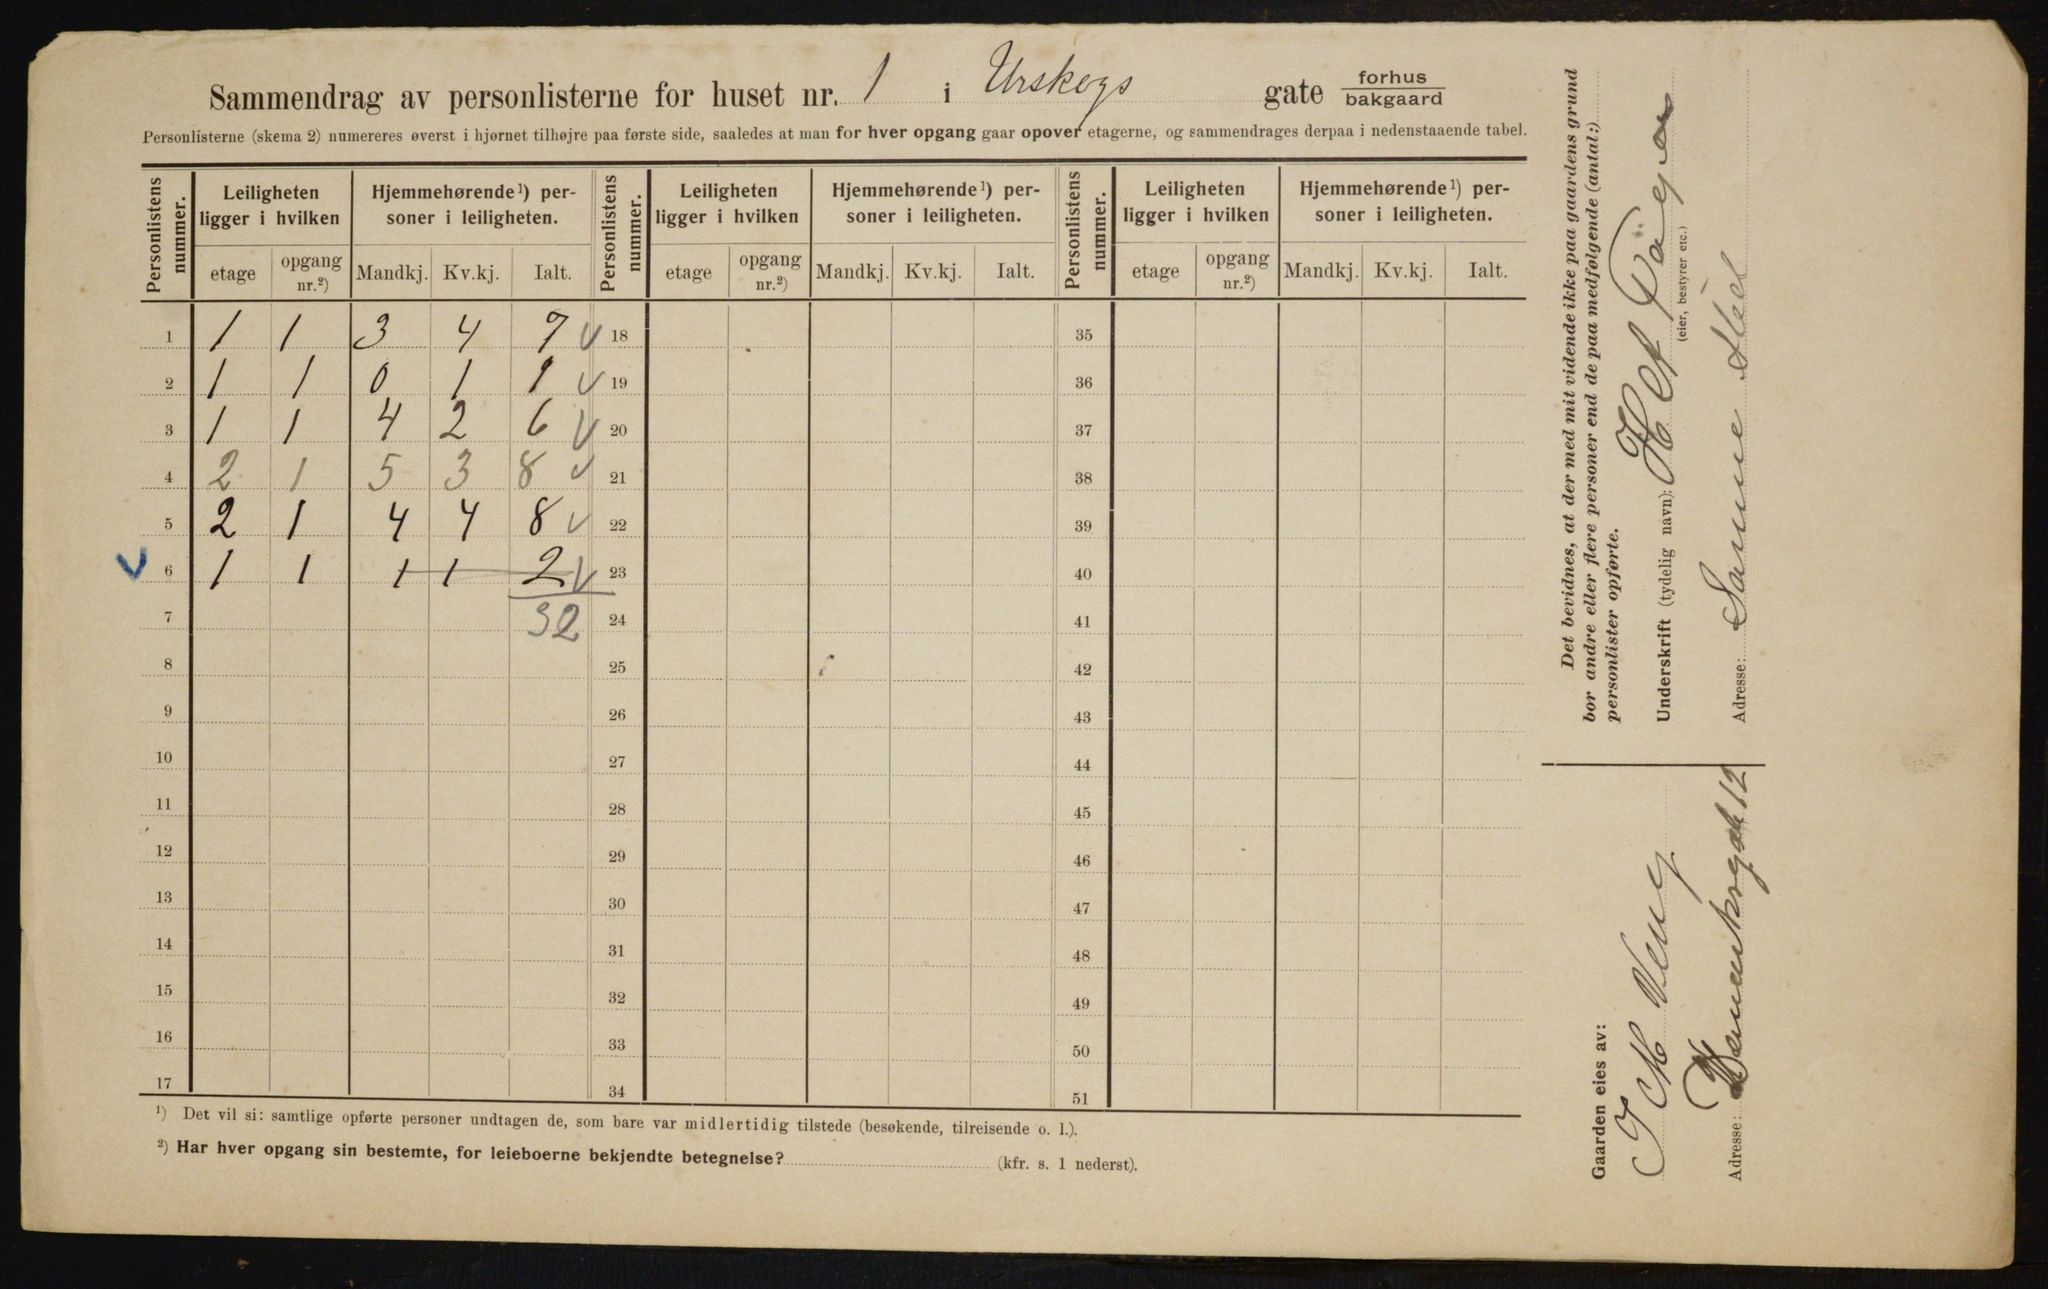 Sammendrag av personlisterne for huset nr. 1 i Urskogs gate forhus
bakgaard
Personlisterne (skema 2) numereres øverst i hjørnet tilhøjre paa første side, saaledes at man for hver opgang gaar opover etagerne, og sammendrages derpaa i nedenstaaende tabel.
Personlistens nummer. Leiligheten ligger i hvilken Hjemmehørende¹) personer i leiligheten. Personlistens nummer. Leiligheten ligger i hvilken Hjemmehørende¹) personer i leiligheten. Personlistens nummer. Leiligheten ligger i hvilken Hjemmehørende¹) personer i leiligheten.
etage opgang nr.²) Mandkj. Kv.kj. Ialt. etage opgang nr.²) Mandkj. Kv.kj. Ialt. etage opgang nr.²) Mandkj. Kv.kj. Ialt.
1 1 1 3 4 7 18 35
2 1 1 0 1 1 19 36
3 1 1 4 2 6 20 37
4 2 1 5 3 8 21 38
5 2 1 4 4 8 22 39
6 1 1 1 1 2 23 40
7 32 24 41
8 25 42
9 26 43
10 27 44
11 28 45
12 29 46
13 30 47
14 31 48
15 32 49
16 33 50
17 34 51
¹) Det vil si: samtlige opførte personer undtagen de, som bare var midlertidig tilstede (besøkende, tilreisende o. l.).
²) Har hver opgang sin bestemte, for leieboerne bekjendte betegnelse? (kfr. s. 1 nederst).
Det bevidnes, at der med mit vidende ikke paa gaardens grund
bor andre eller flere personer end de paa medfølgende (antal:)
personlister opførte.
Underskrift (tydelig navn):
(eier, bestyrer etc.)
Adresse: Samme Sted
Gaarden eies av:
Veng
Adresse: 12